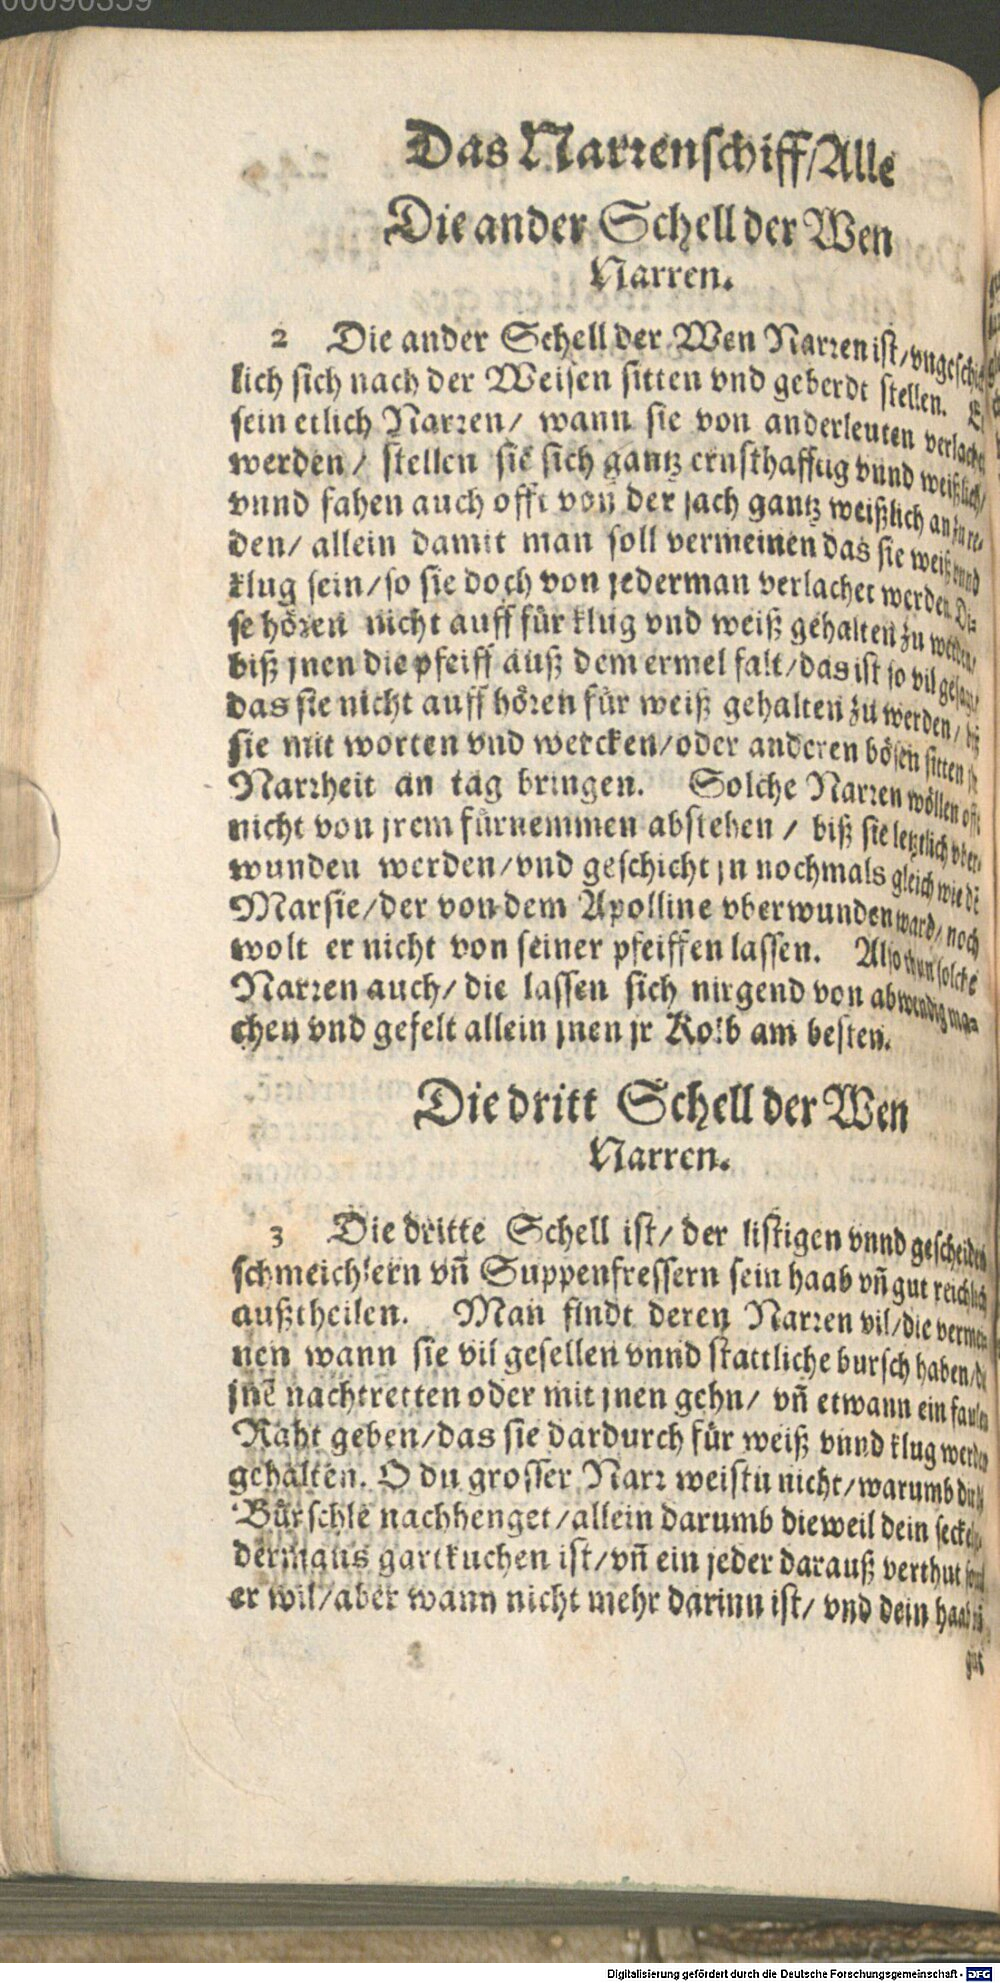 00090359
Das Narrenschiff/Alle
Die ander Schell der Wen
Narren.
2 Die ander Schell der Wen Narren ist/vngeschick
lich sich nach der Weisen sitten vnd geberdt stellen. Es
sein etlich Narren/ wann sie von anderleuten verlachet
werden/ stellen sie sich gantz ernsthafftig vnnd weißlich/
vnnd fahen auch offt von der jach gantz weißlich an zu re-
den/ allein damit man soll vermeinen das sie weiß vnnd
klug sein/so sie doch von jederman verlachet werden. Di-
se hören nicht auff für klug vnd weiß gehalten zu werden/
biß jnen die pfeiff auß dem ermel falt/das ist so vil gesagt/
das sie nicht auff hören für weiß gehalten zu werden/ biß
sie mit worten vnd wercken/oder anderen bösen sitten jr
Narrheit an tag bringen. Solche Narren wöllen offt
nicht von jrem fürnemmen abstehen / biß sie letztlich vber-
wunden werden/vnd geschicht jn nochmals gleich wie dē
Marsie/der von dem Apolline vberwunden ward/noch
wolt er nicht von seiner pfeiffen lassen. Also thun solche
Narren auch/ die lassen sich nirgend von abwendig ma-
chen vnd gefelt allein jnen jr Kolb am besten.
Die dritt Schell der Wen
Narren.
3 Die dritte Schell ist/ der listigen vnnd gescheiden
schmeichlern vn̄ Suppenfressern sein haab vn̄ gut reichlich
außtheilen. Man findt deren Narren vil/die vermei-
nen wann sie vil gesellen vnnd stattliche bursch haben/die
jnē nachtretten oder mit jnen gehn/ vn̄ etwann ein faulen
Raht geben/das sie dardurch für weiß vnnd klug werden
gehalten. O du grosser Narr weistu nicht/warumb diß
Bürschle nachhenget/allein darumb dieweil dein seckel je-
dermans gartkuchen ist/vn̄ ein jeder darauß verthut souil
er wil/aber wann nicht mehr darinn ist/ vnd dein haab vn̄
gut
Digitalisierung gefördert durch die Deutsche Forschungsgemeinschaft - DFG